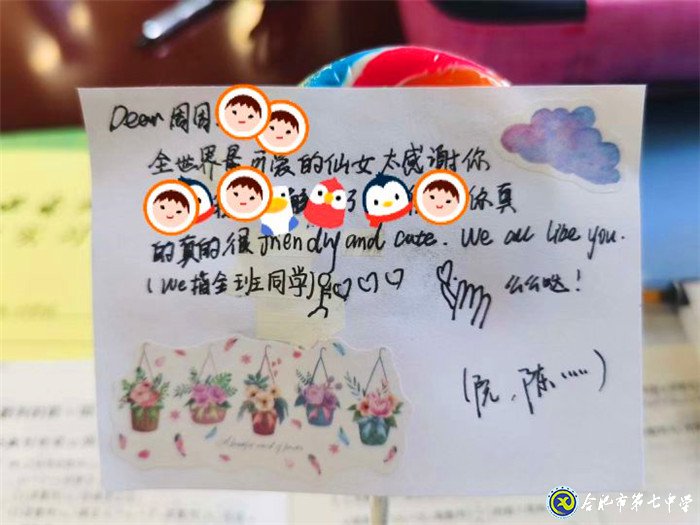 Dear 周周.
全世界最可爱的仙女太感谢你
了 你真
的真的很 friendly and cute. We all like you.
(We指全班同学)
么么哒!
(阮、陈……)
合肥市第七中学